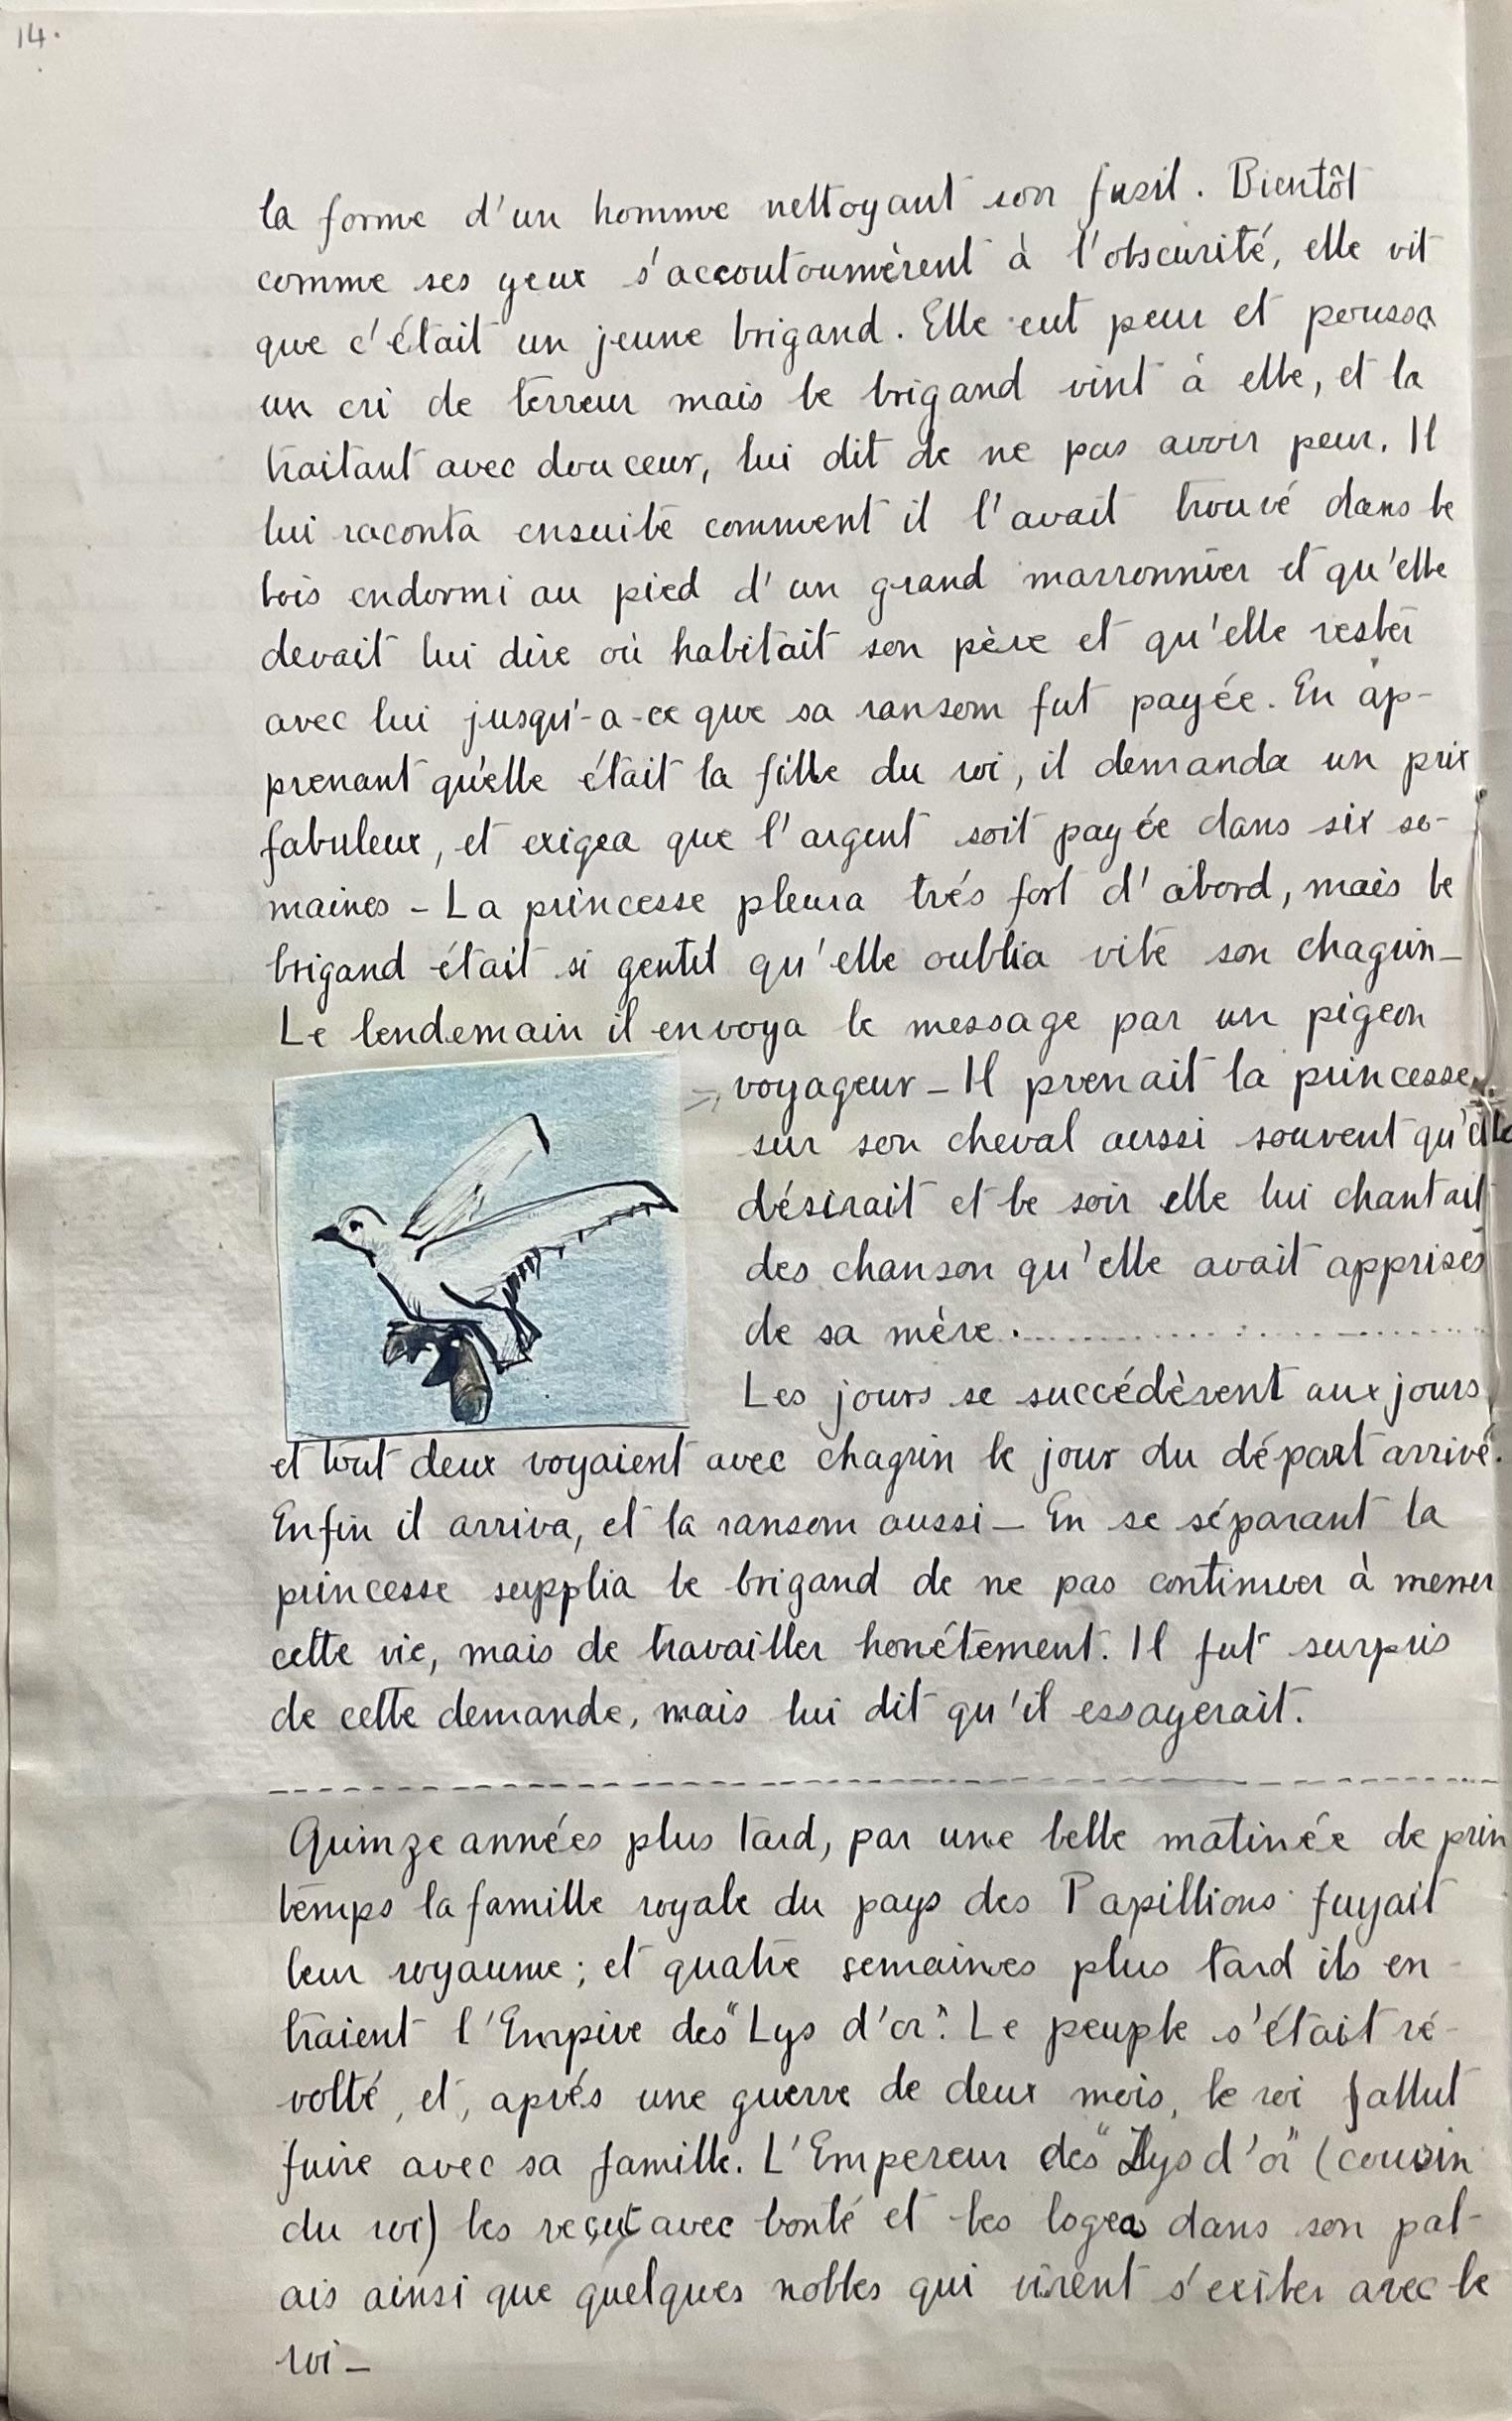 14.
la forme d'un homme nettoyant son fusil. Bientôt
comme ses yeux s'accoutoumèrent à l'obscurité, elle vit
que c'était un jeune brigand. Elle eut peur et poussa
un cri de terreur mais le brigand vint à elle, et la
traitant avec douceur, lui dit de ne pas avoir peur. Il
lui raconta ensuite comment il l'avait trouvé dans le
bois endormi au pied d'un grand marronnier et qu'elle
devait lui dire où habitait son père et qu'elle rester
avec lui jusqu'-a-ce que sa ransom fut payée. En ap-
prenant qu'elle était la fille du roi, il demanda un prix
fabuleux, et exigea que l'argent soit payée dans six se-
maines - La princesse pleura trés fort d'abord, mais le
brigand était si gentil qu'elle oublia vite son chagrin -
Le lendemain il envoya le message par un pigeon
voyageur - Il prenait la princesse
sur son cheval aussi souvent qu'elle
désirait et le soir elle lui chantait
des chanson qu'elle avait apprises
de sa mère.
Les jours se succédèrent aux jours
et tout deux voyaient avec chagrin le jour du départ arrivé.
Enfin il arriva, et la ransom aussi - En se séparant la
princesse supplia le brigand de ne pas continuer à mener
cette vie, mais de travailler honétement. Il fut surpris
de cette demande, mais lui dit qu'il essayerait.
Quinze années plus tard, par une belle matinée de prin
temps la famille royale du pays des Papillions fuyait
leur royaume; et quatre semaines plus tard ils en-
traient l'Empire des "Lys d'or". Le peuple s'était ré-
volté, et, aprés une guerre de deux mois, le roi fallut
fuire avec sa famille. L'Empereur des "Lys d'or" (cousin
du roi) les reçut avec bonté et les logea dans son pal-
ais ainsi que quelques nobles qui virent s'exiler avec le
roi -